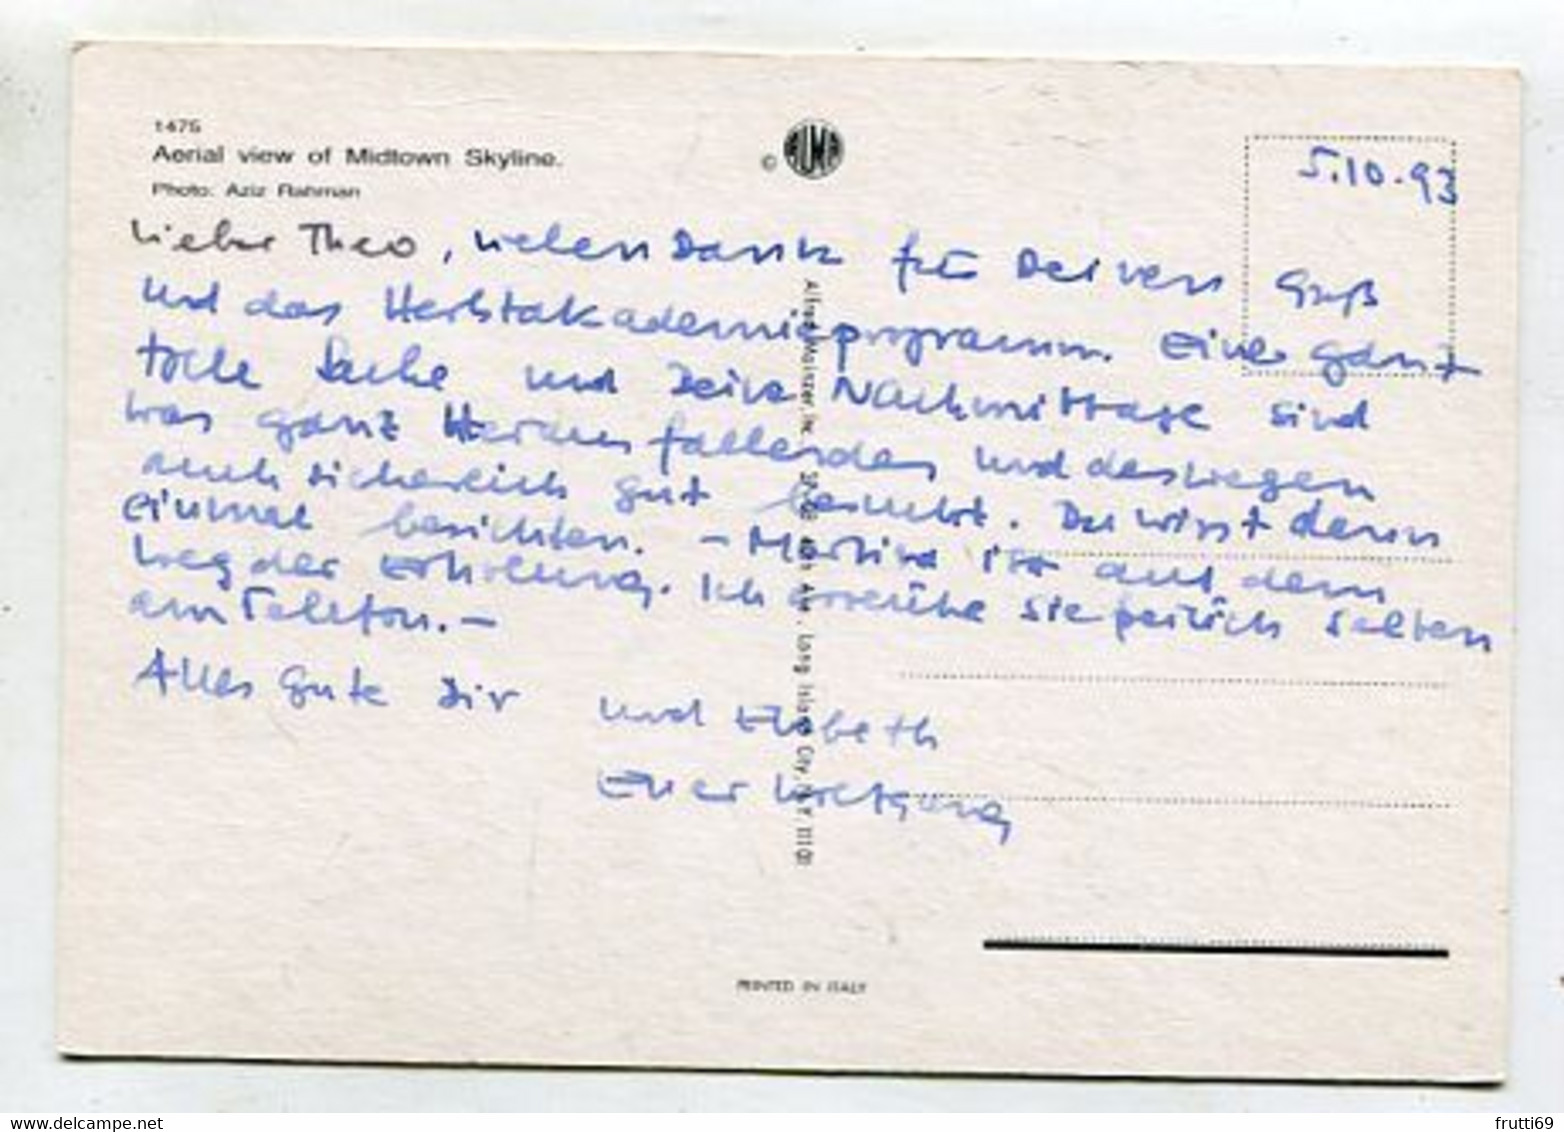 1475
Aerial view of Midtown Skyline.
Photo: Aziz Rahman
© ALMA
5.10.93
Lieber Theo, vielen Dank für Deinen Gruß
und das Herbstakademieprogramm. Eine ganz
tolle Sache und Deine Nachmittage sind
was ganz Herausfallendes und deswegen
auch sicherlich gut besucht. Du wirst denn
einmal berichten. – Martina ist auf dem
Weg der Erholung. Ich erreiche sie peinlich selten
am Telefon. –
Alles Gute Dir und Elsbeth
Euer Wolfgang
Alfred Mainzer, Inc. Ave., Long Island City, N.Y. 11101
PRINTED IN ITALY
www.delcampe.net
frutti69